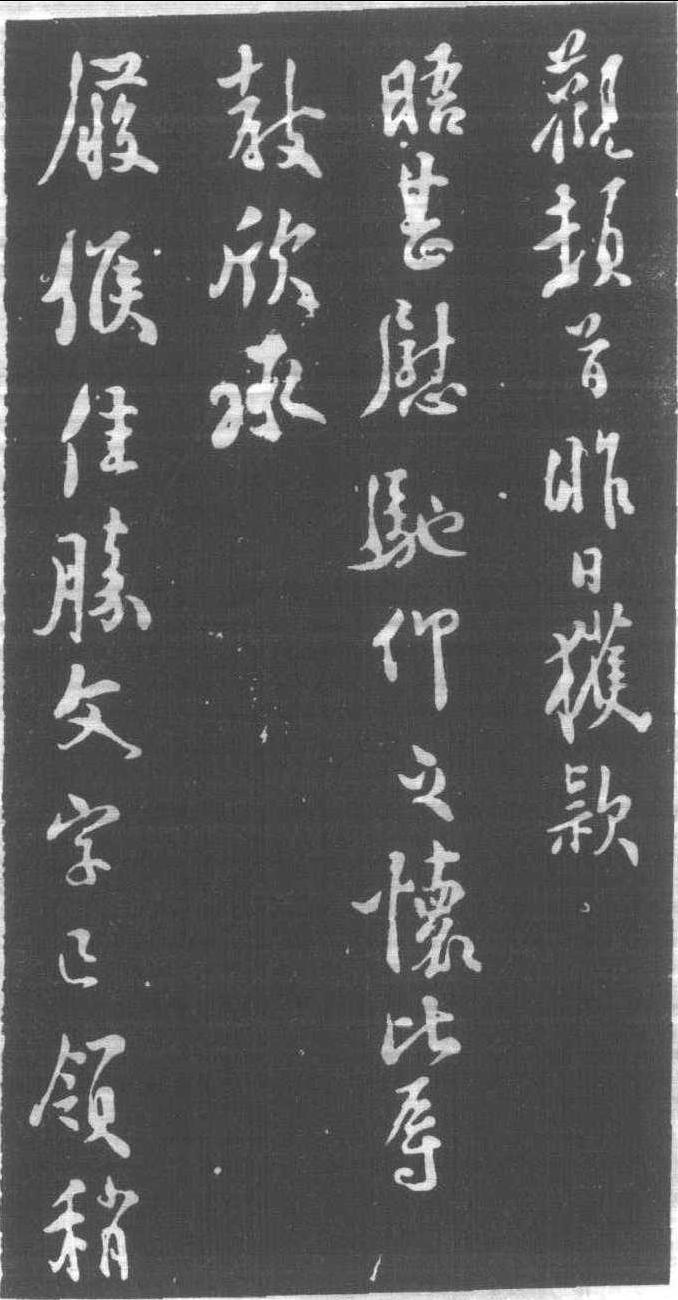 觀頓首昨日獲款
晤甚慰馳仰之懷比辱
教欣承
嚴候佳勝文字已領稍